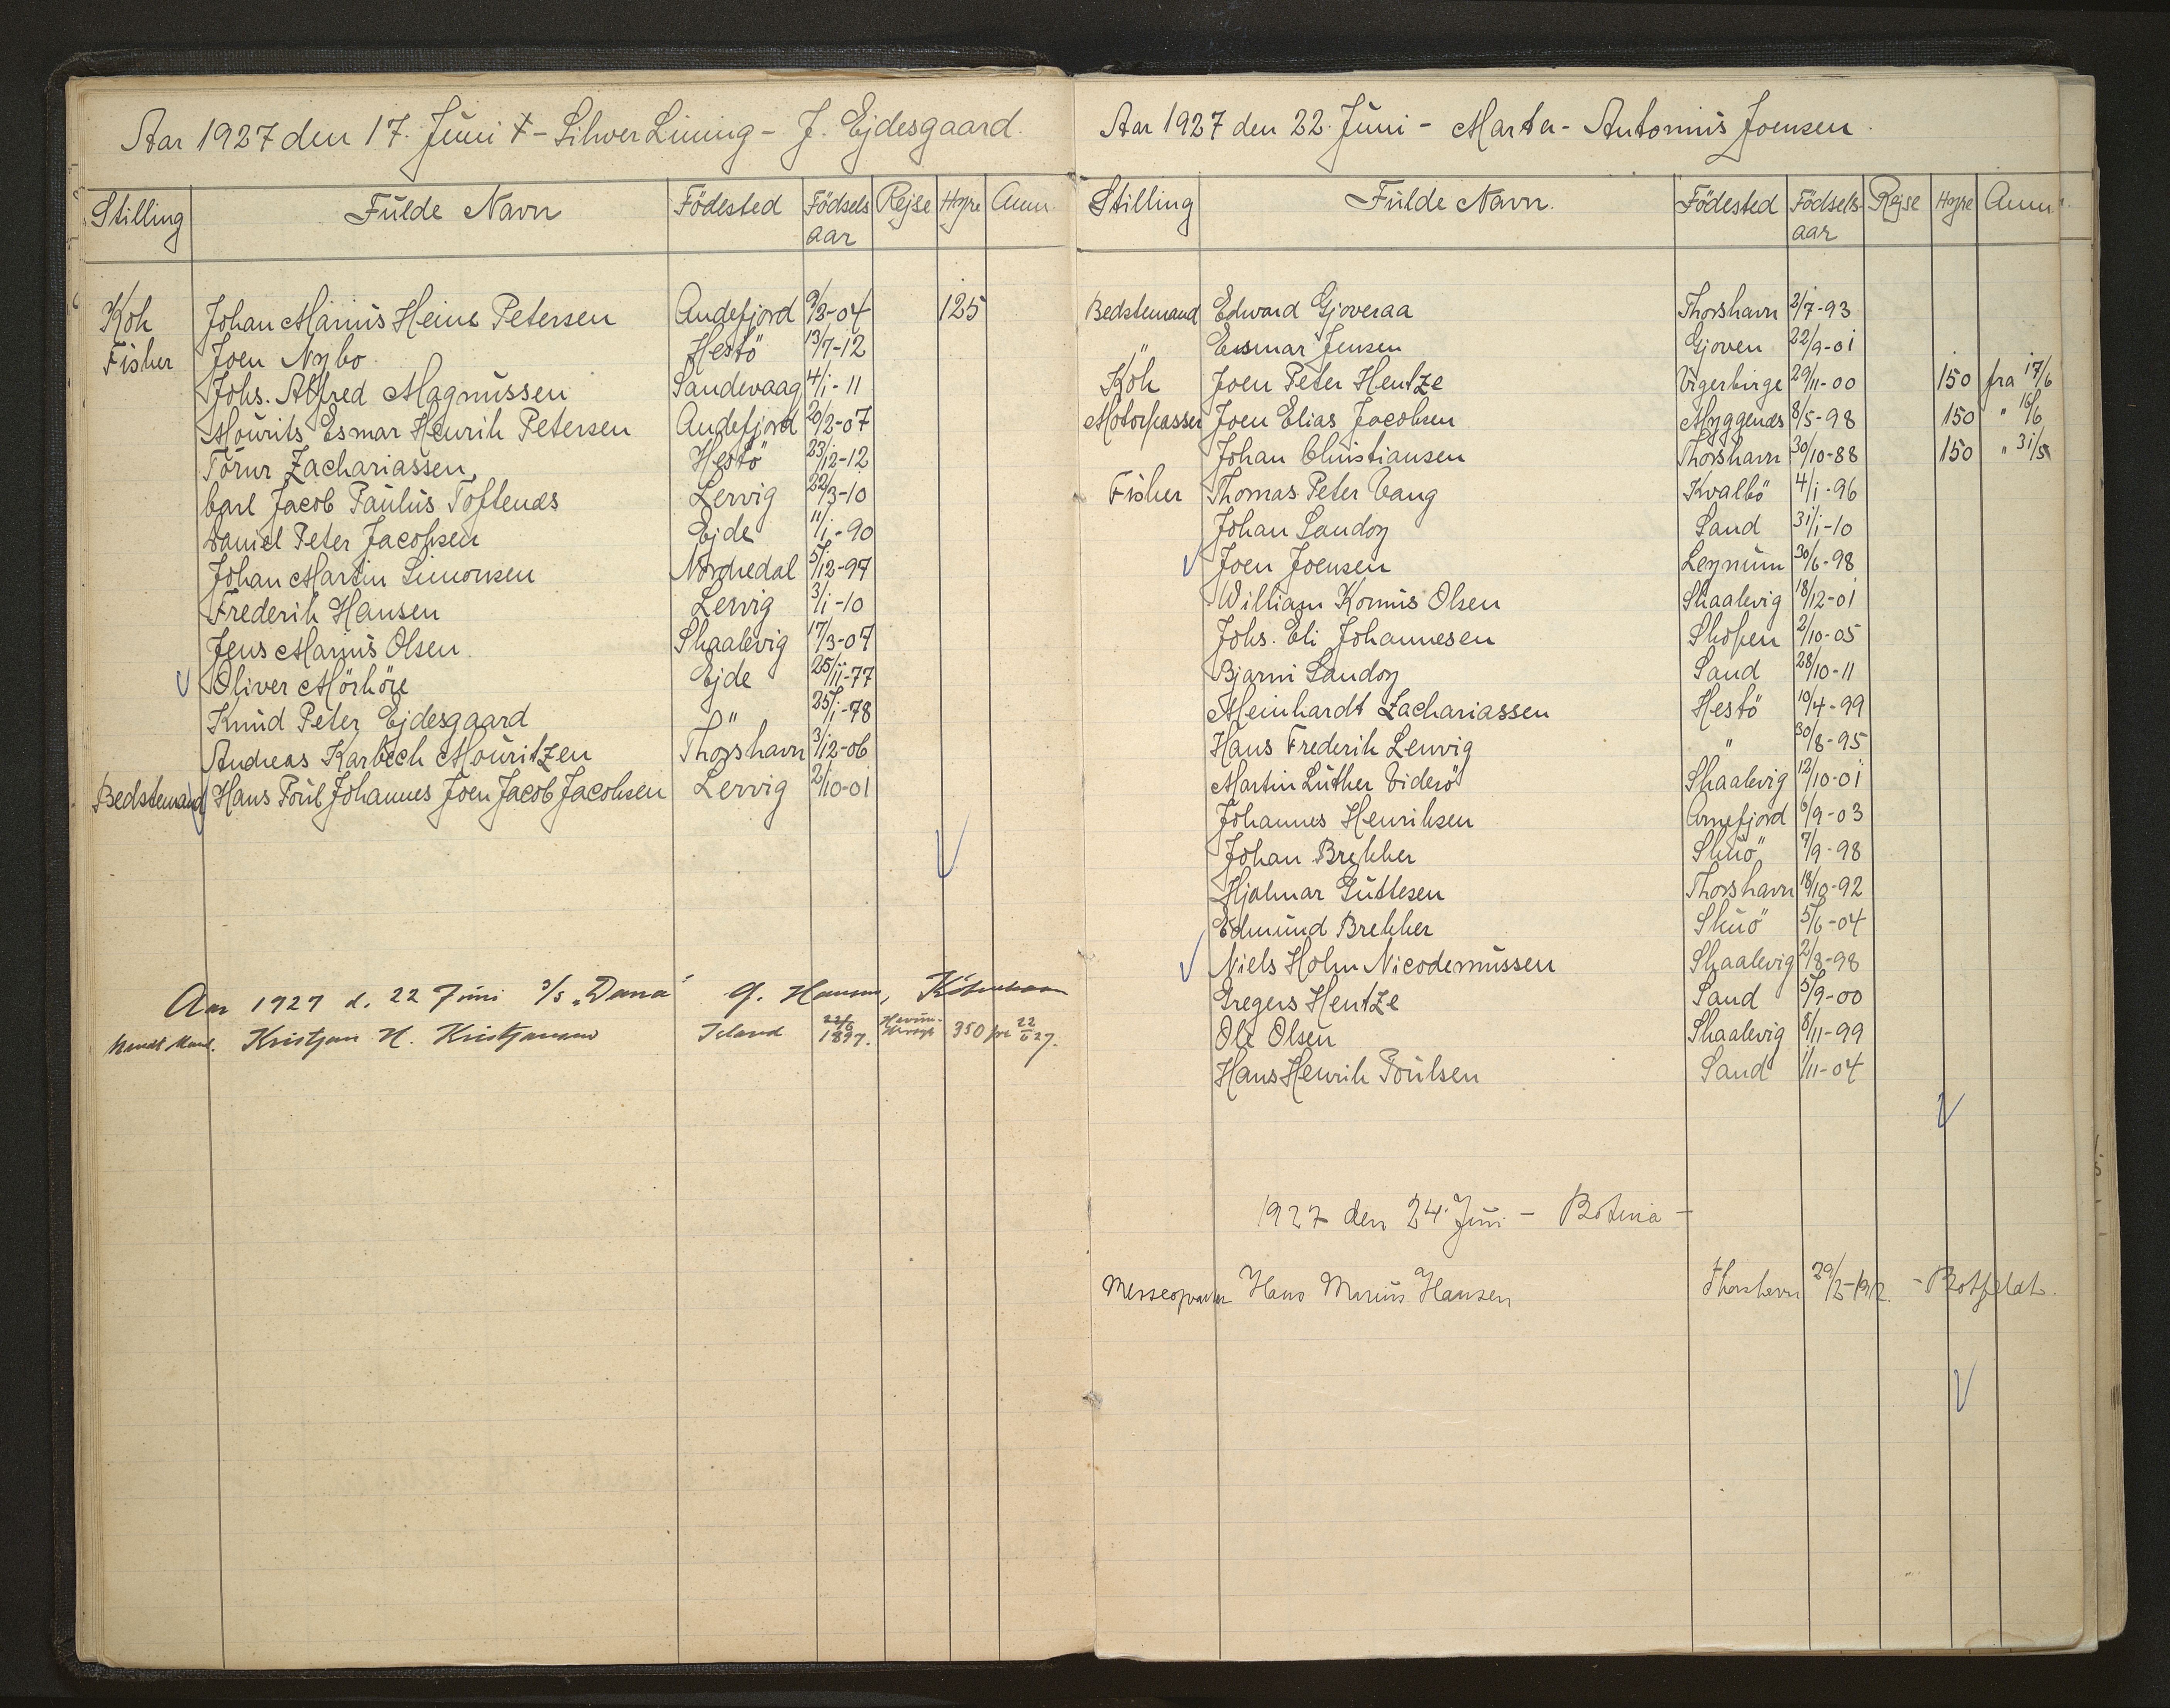 Aar 1927 den 17. Juni - Silver Lining - J. Ejdesgaard.
Stilling Fulde Navn Födested Födsels aar Rejse Hyre Anm.
Kok Johan Marius Heine Petersen Andefjord 9/2-04 125
Fisker Joen Nybo Hestö 13/7-12
Johs. Alfred Magnussen Sandevaag 4/1-11
Mourits Esmar Henrik Petersen Andefjord 20/2-07
Zachariassen Hestö 23/12-12
Carl Jacob Paulus Toftenæs Lervig 22/3-10
Daniel Peter Jacobsen Ejde 11/1-90
Johan Martin Simonsen Nordredal 5/12-97
Frederik Hansen Lervig 3/1-10
Jens Marius Olsen Skaalevig 17/3-07
Oliver Mörköre Ejde 25/11-77
Knud Peter Ejdesgaard " 25/1-78
Andreas Karbech Mouritzen Thorshavn 3/12-06
Bedstemand Hans Poul Johannes Joen Jacob Jacobsen Lervig 2/10-01
Aar 1927 d. 22 Juni S/S "Dana" G. Hansen,
Kristjan H. Kristjansson Island 1897. 350 22/6 27.
Aar 1927 den 22. Juni - Marta - Antonius Joensen.
Stilling Fulde Navn. Födested Födsels aar Rejse Hyre Anm.
Bedstemand Edward Gjoveraa Thorshavn 2/7-93
" Esmar Jensen Gjoven 22/9-01
Kok Joen Peter Hentze Vigerbirge 29/11-00 150 fra 17/6
Motorpasser Joen Elias Jacobsen Myggenæs 8/5-98 150 " 16/6
Johan Christiansen Thorshavn 30/10-88 150 " 31/5
Fisker Thomas Peter Vang Kvalbö 4/1-96
Johan Sandoy Sand 31/1-10
Joen Joensen Leynum 30/6-98
William Kornus Olsen Skaalevig 18/12-01
Johs. Eli Johannesen Skopen 2/10-05
Bjarni Sandoy Sand 28/10-11
Meinhardt Zachariassen Hestö 10/4-99
Hans Frederik Lervig " 30/8-95
Martin Luther Viderö Skaalevig 12/10-01
Johannes Henriksen Arnefjord 6/9-03
Johan Brekker Skuö 7/9-98
Hjalmar Guttesen Thorshavn 18/10-92
Edmund Brekker Skuö 5/6-04
Niels Holm Nicodemussen Skaalevig 2/8-98
Gregers Hentze Sand 5/9-00
Ole Olsen Skaalevig 8/11-99
Hans Henrik Poulsen Sand 1/11-04
1927 den 24. Juni - Botnia -
Messeopvarter Hans Marius Hansen Thorshavn